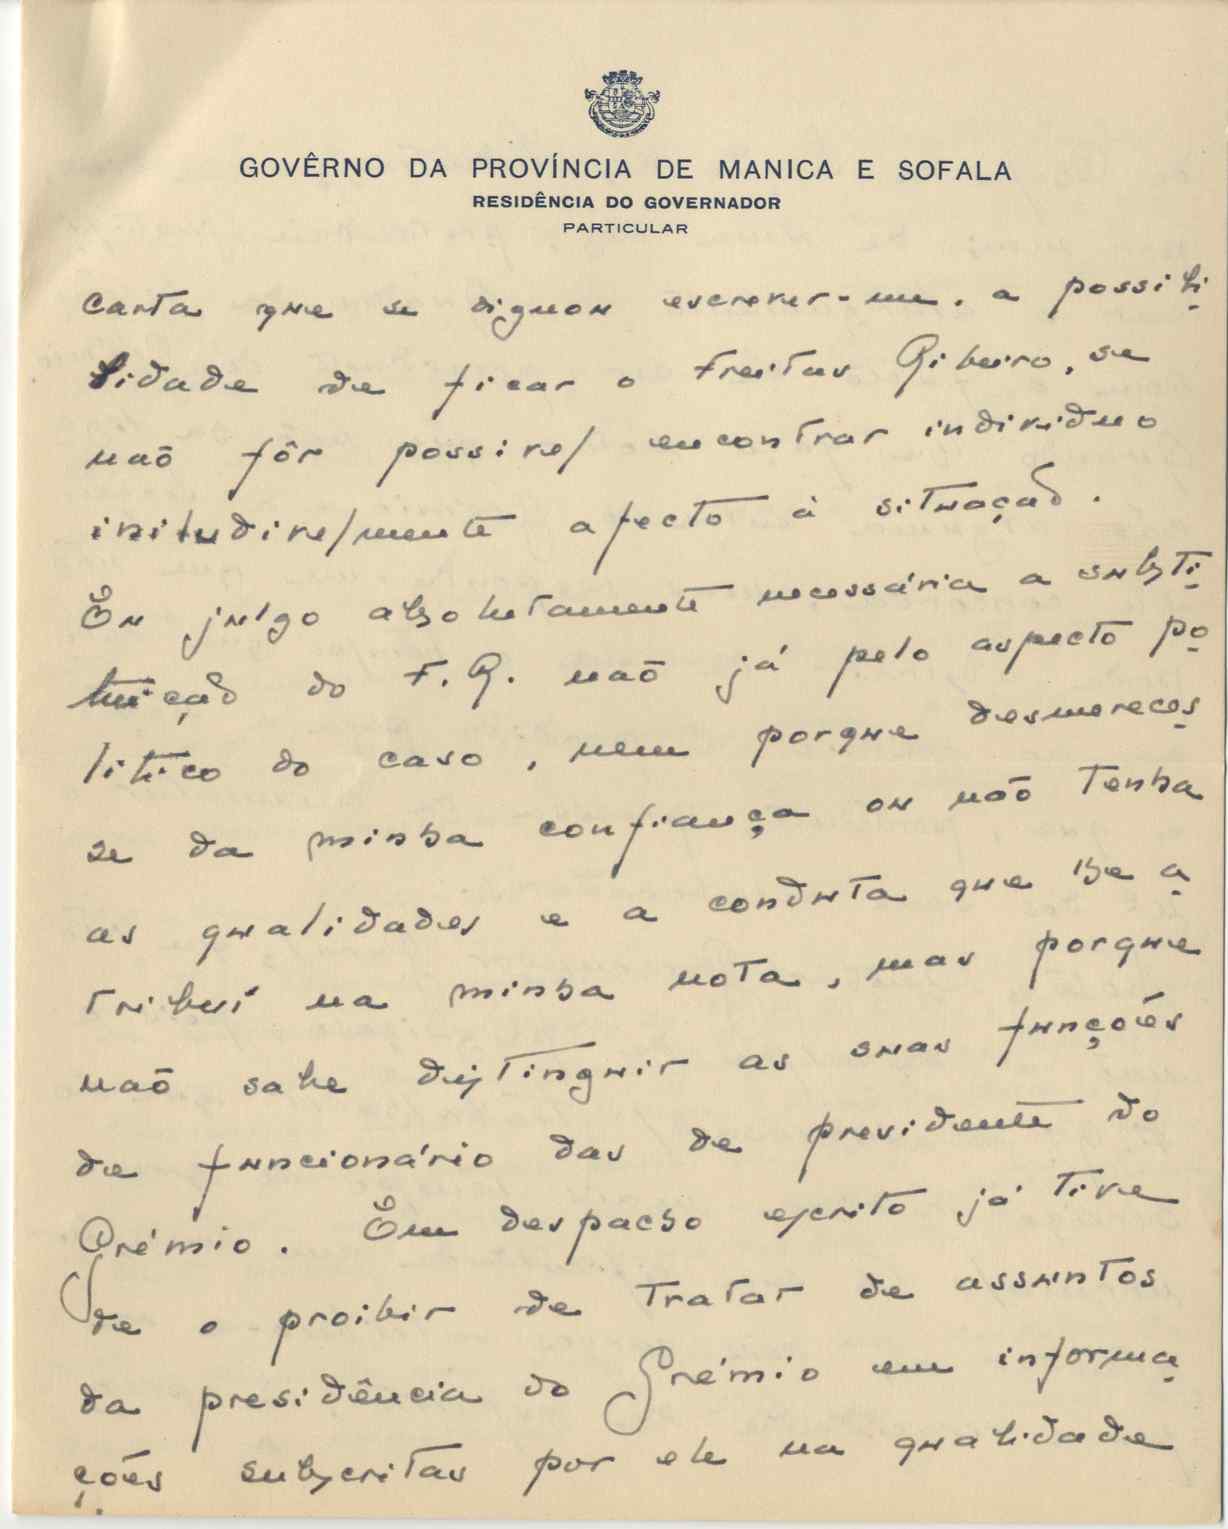 GOVÊRNO DA PROVÍNCIA DE MANICA E SOFALA
RESIDÊNCIA DO GOVERNADOR
PARTICULAR
carta que se dignou escrever-me, a possibi-
lidade de ficar o Freitas Ribeiro, se
não fôr possivel encontrar individuo
iniludivelmente afecto à situação.
Eu julgo absolutamente necessária a substi-
tuição do F. R. não já pelo aspecto po-
litico do caso, nem porque desmereces-
se da minha confiança ou não tenha
as qualidades e a conduta que lhe a-
tribuí na minha nota, mas porque
não sabe distinguir as suas funções
de funcionário das de presidente do
Grémio. Em despacho escrito já tive
de o proibir de tratar de assuntos
da presidência do Grémio em informa-
ções subscritas por ele na qualidade